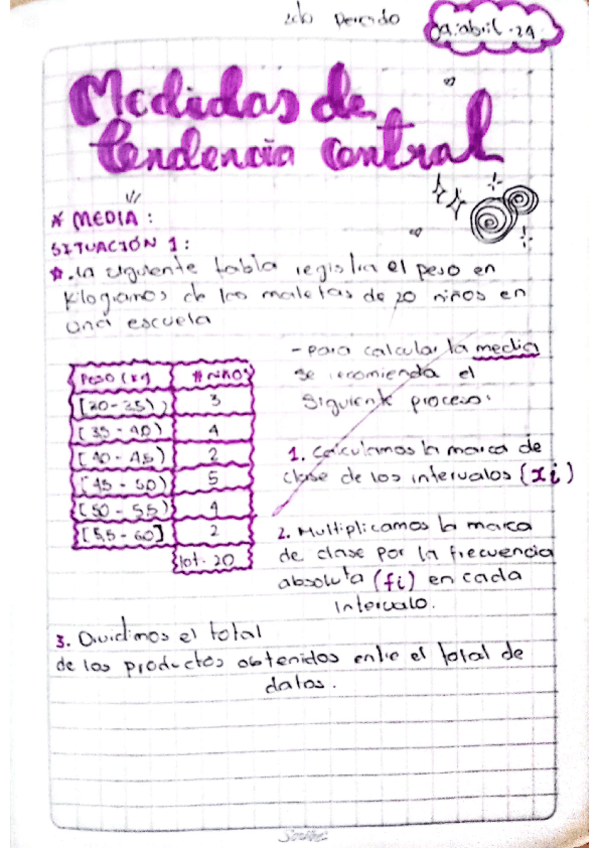 2do Periodo
09. abril - 24
Medidas de
tendencia central
* MEDIA :
SITUACIÓN 1 :
. La siguiente tabla registra el peso en
Kilogramos de las maletas de 20 niños en
una escuela
- para calcular la media
se recomienda el
siguiente proceso:
Peso (kg) # niños
3
[35 - 40) 4
[40 - 45) 2
[45 - 50) 5
[50 - 55) 4
[55 - 60] 2
tot. 20
1. Calculamos la marca de
clase de los intervalos (xi)
2. Multiplicamos la marca
de clase por la frecuencia
absoluta (fi) en cada
intervalo.
3. Dividimos el total
de los productos obtenidos entre el total de
datos.
Scribe